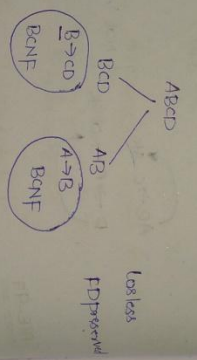 ABCD
BCD
AB
B→CD
BCNF
A→B
BCNF
Losless
FD preserved